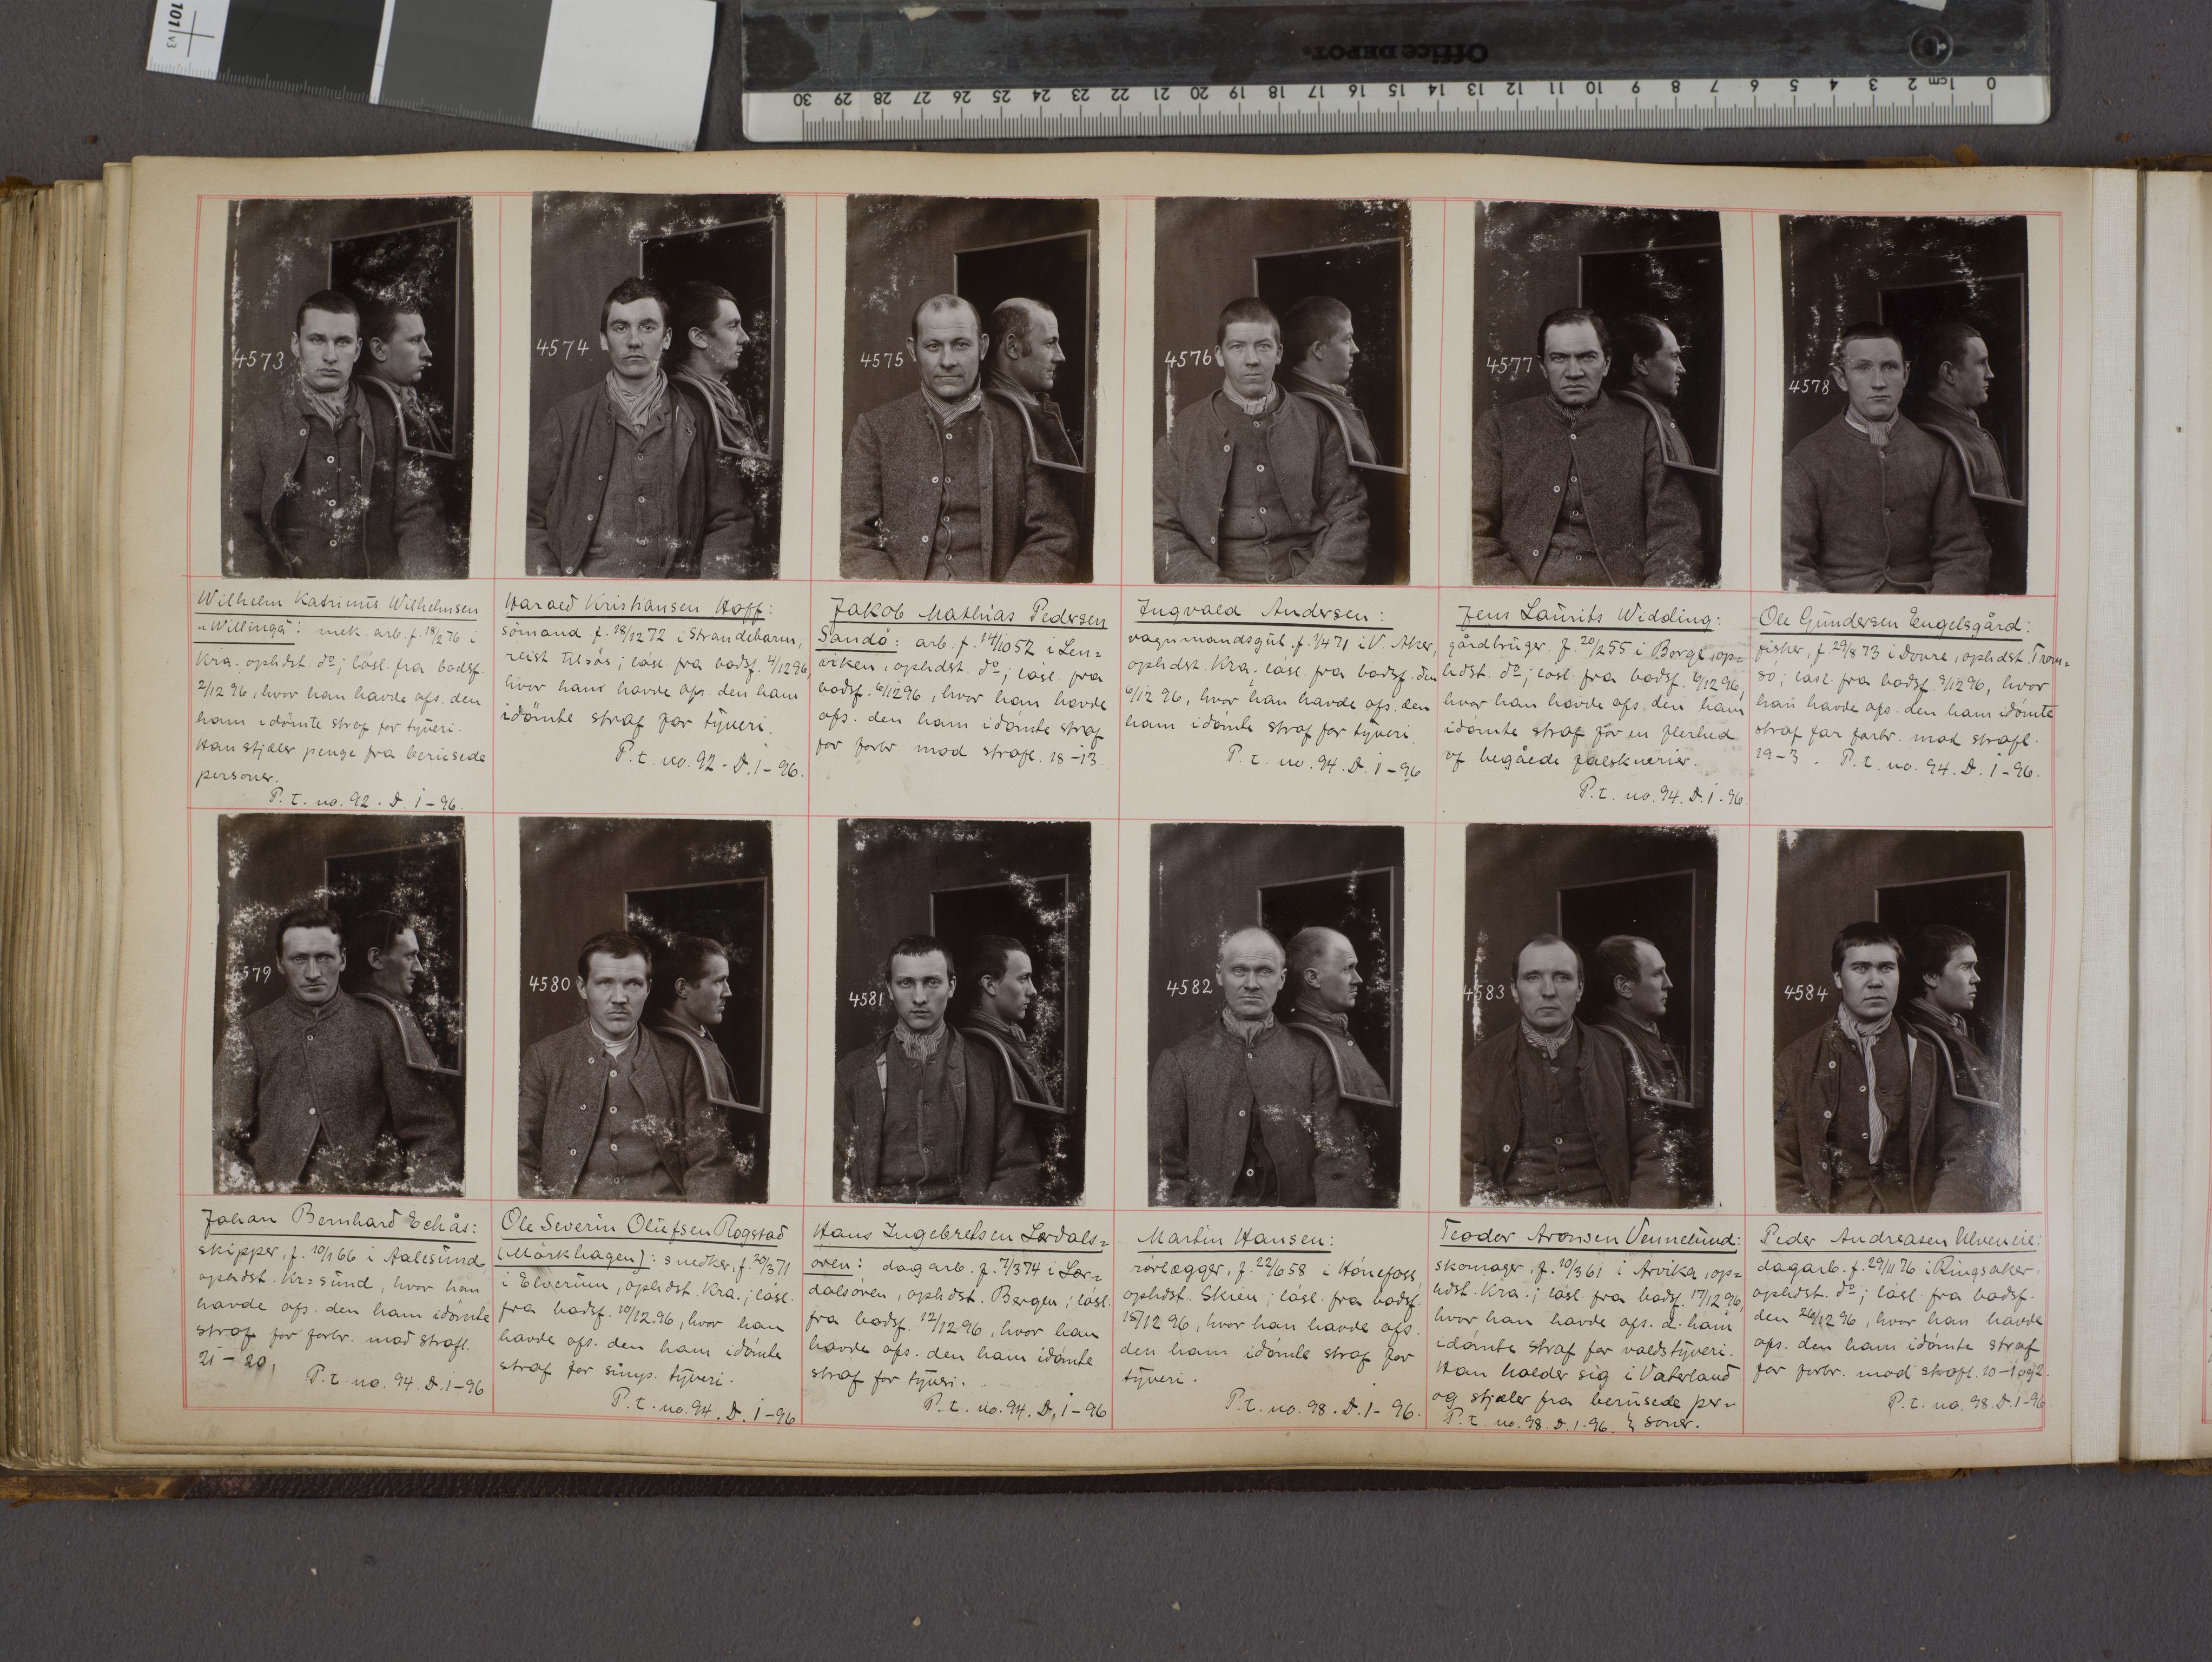 101 v3
Office DEPOT.
30 29 28 27 26 25 24 23 22 21 20 19 18 17 16 15 14 13 12 11 10 9 8 7 6 5 4 3 2 1cm 0
4573
4574
4575
4576
4577
4578
Wilhelm Katrinus Wilhelmsen
"Willinga": mek. arb. f. 18/2 76 i
Kra. ophdst. do; løsl. fra bodsf.
2/12 96, hvor han havde afs. den
ham idömte straf for tyveri.
Han stjæler penge fra berusede
personer.
P. t. no. 92. D. 1 - 96.
Harald Kristiansen Hoff:
sömand f. 18/12 72 i Strandebarm,
reist tilsös; løsl. fra bodsf. 4/12 96,
hvor han havde afs. den ham
idömte straf for tyveri.
P. t. no. 92 - D. 1 - 96.
Jakob Mathias Pedersen
Sandö: arb. f. 14/10 52 i Len=
viken, ophdst. do; løsl. fra
bodsf. 6/12 96, hvor han havde
afs. den ham idömte straf
for forbr. mod strafl. 18 - 13.
Ingvald Andersen:
vognmandsgut, f. 1/4 71 i V. Aker,
ophdst. Kra; løsl. fra bodsf. den
6/12 96, hvor han havde afs. den
ham idömte straf for tyveri.
P. t. no. 94. D. 1 - 96
Jens Laurits Widding:
gårdbruger. f. 20/2 55 i Borge, op=
hdst. do; løsl. fra bodsf. 6/12 96,
hvor han havde afs. den ham
idömte straf for en flerhed
af begåede falsknerier.
P. t. no. 94. D. 1 - 96
Ole Gundersen Engelsgård:
fisker, f. 29/8 73 i Dovre, ophdst. Trom=
sö; løsl. fra bodsf. 9/12 96, hvor
han havde afs. den ham idömte
straf for forbr. mod strafl.
19 - 3. P. t. no. 94. D. 1 - 96.
4579
4580
4581
4582
4583
4584
Johan Bernhard Echås:
skipper, f. 10/1 66 i Aalesund,
ophdst. Kr=sund, hvor han
havde afs. den ham idömte
straf for forbr. mod strafl.
21 - 20,
P. t. no. 94. D. 1 - 96
Ole Severin Olufsen Rogstad
(Mörkhagen): snedker, f. 20/3 71
i Elverum, ophdst. Kra.; løsl.
fra bodsf. 10/12 96, hvor han
havde afs. den ham idömte
straf for simp. tyveri.
P. t. no. 94. D. 1 - 96
Hans Ingebretsen Lærdals=
ören: dagarb. f. 7/3 74 i Lær=
dalsören, ophdst. Bergen; løsl.
fra bodsf. 12/12 96, hvor han
havde afs. den ham idömte
straf for tyveri.
P. t. no. 94. D. 1 - 96
Martin Hansen:
rörlægger, f. 22/6 58 i Hönefoss,
ophdst. Skien; løsl. fra bodsf.
15/12 96, hvor han havde afs.
den ham idömte straf for
tyveri.
P. t. no. 98. D. 1 - 96.
Teodor Aronsen Vennelund:
skomager, f. 10/3 61 i Arvika, op=
hdst. Kra.; løsl. fra bodsf. 17/12 96,
hvor han havde afs. d. ham
idömte straf for voldstyveri.
Han holder sig i Vaterland
og stjæler fra berusede per=
P. t. no. 98. D. 1. 96. } soner.
Peder Andreasen Ulveneie:
dagarb. f. 29/11 76 i Ringsaker.
ophdst. do; løsl. fra bodsf.
den 26/12 96, hvor han havde
afs. den ham idömte straf
for forbr. mod strafl. 10 - 1 og 2.
P. t. no. 98. D. 1 - 96.